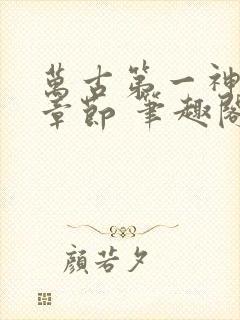 萬古第一神
章節 筆趣閣
顏若夕